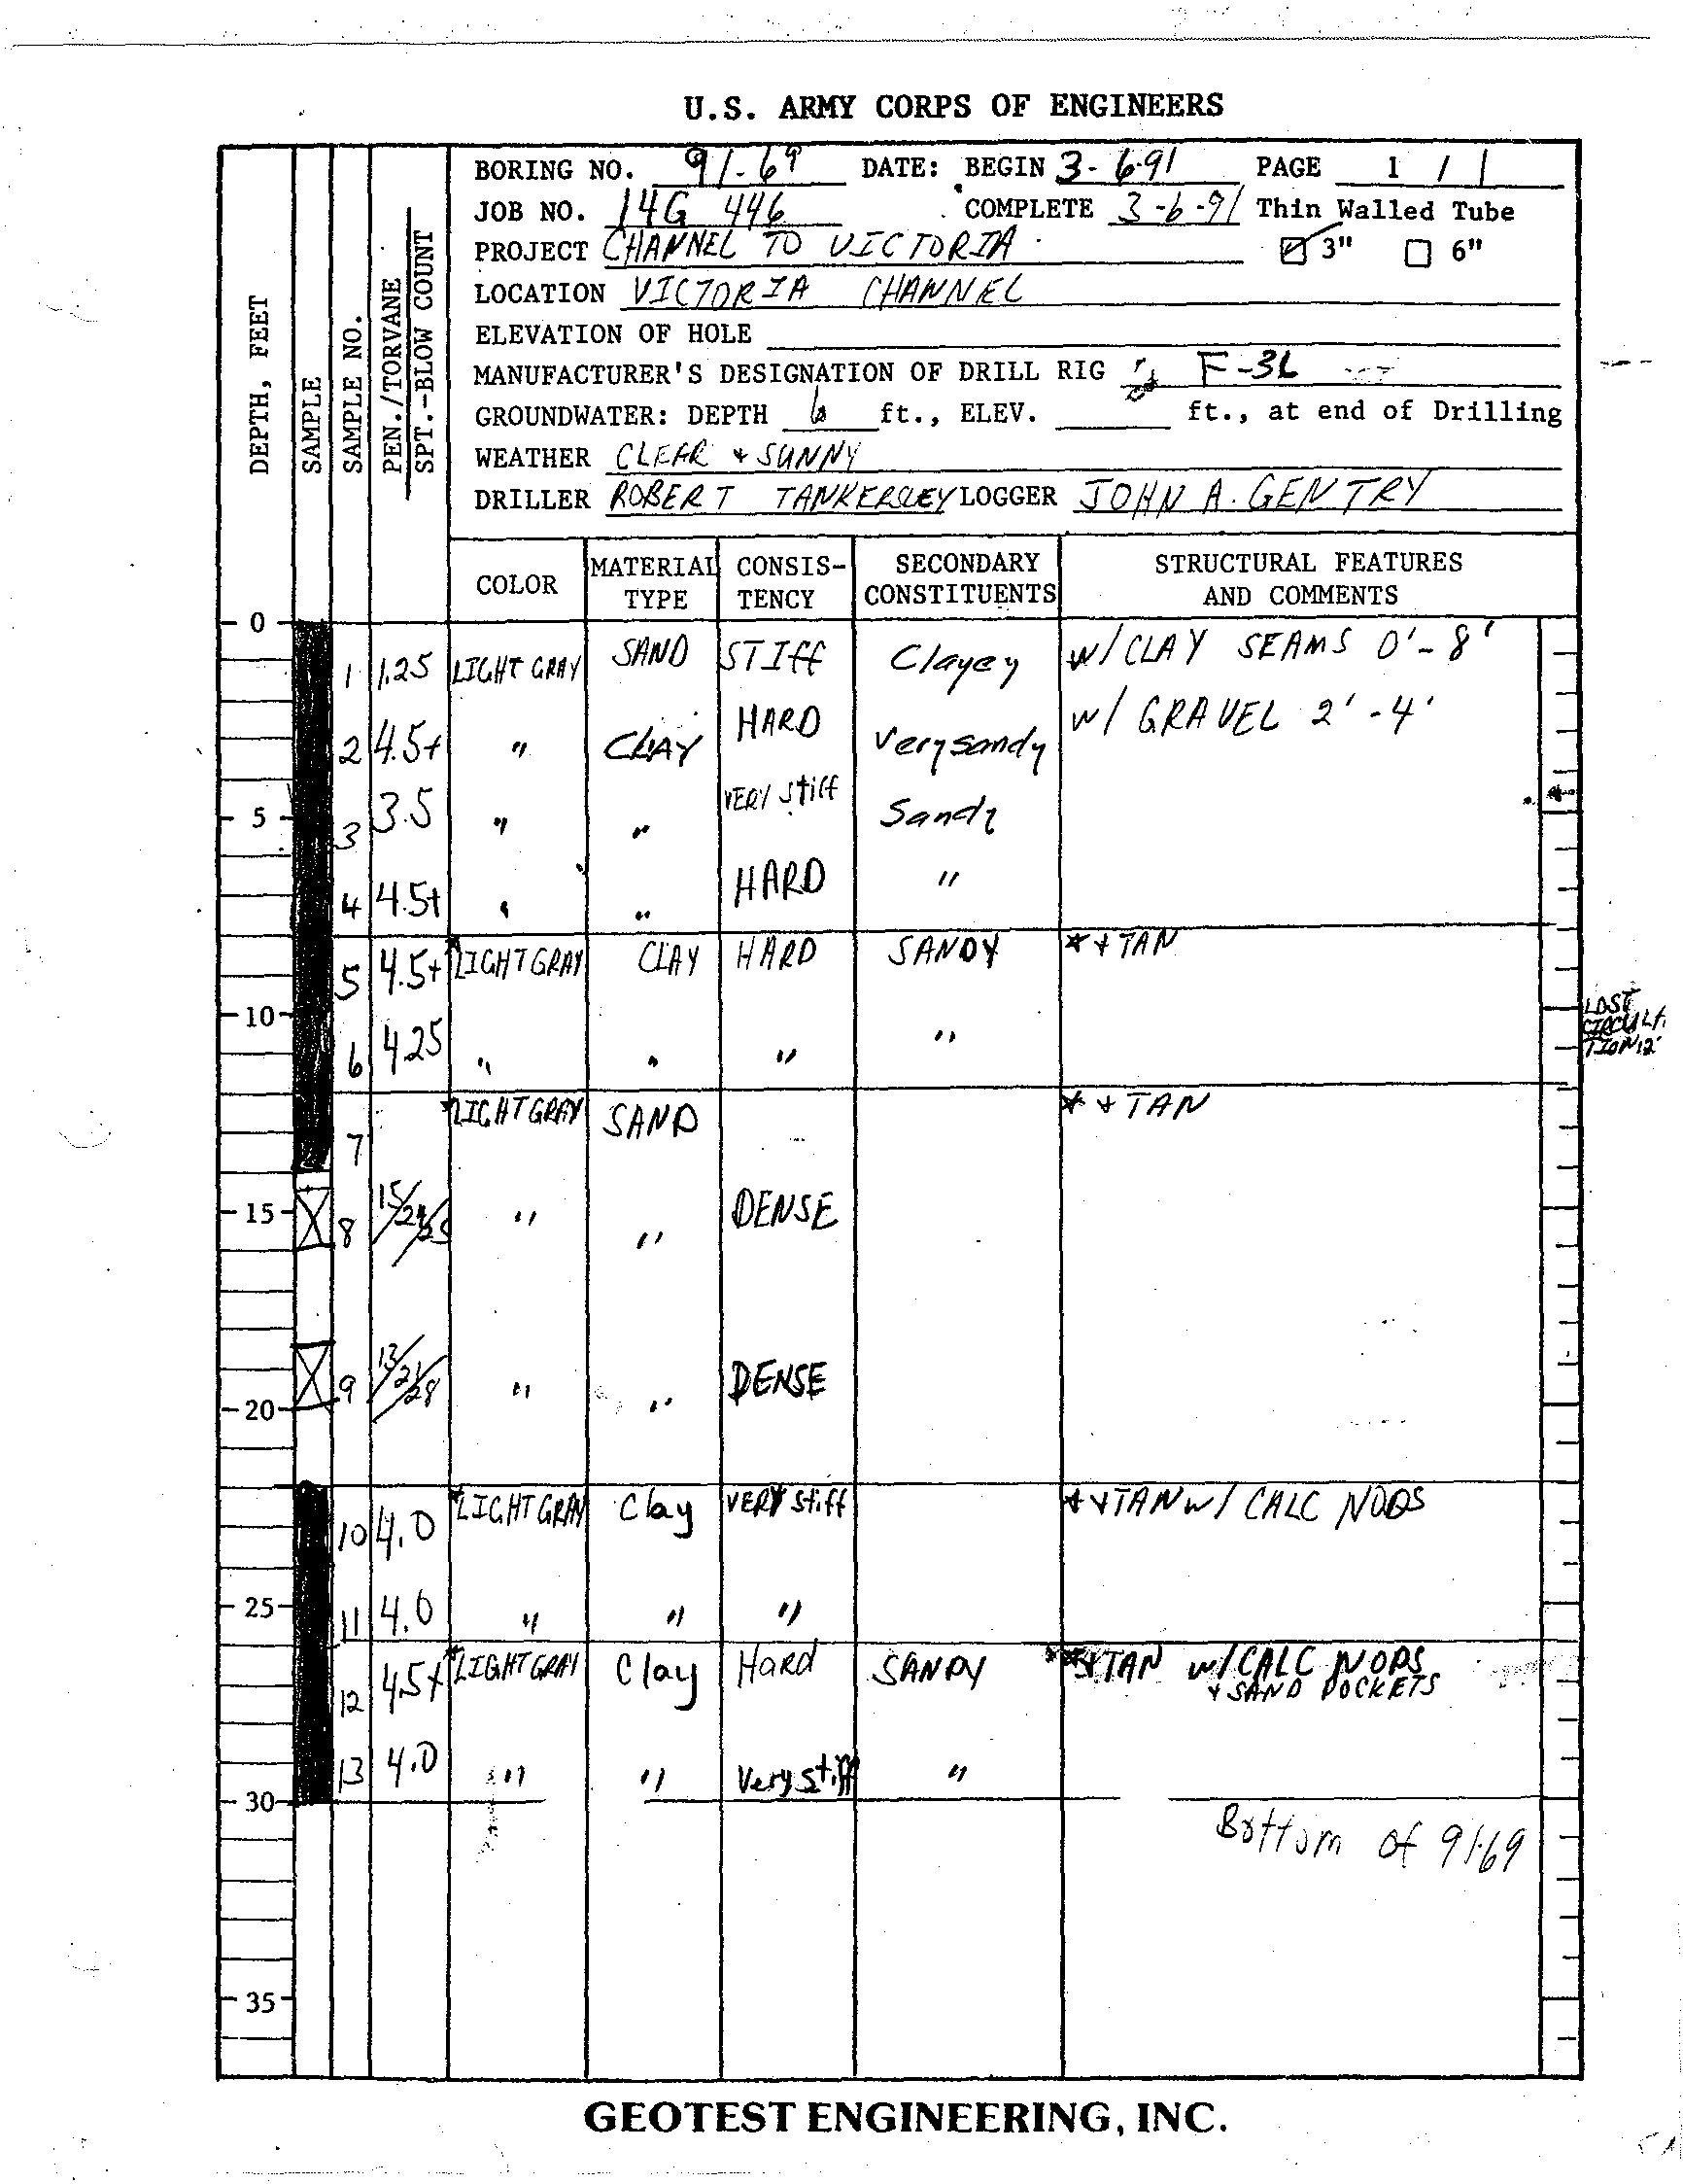 U.S. ARMY CORPS OF ENGINEERS
BORING NO. 91-69 DATE: BEGIN 3-6-91 PAGE 1 / 1
JOB NO. 14G 446 COMPLETE 3-6-91 Thin Walled Tube
PROJECT CHANNEL TO VICTORIA 3" 6"
LOCATION VICTORIA CHANNEL
ELEVATION OF HOLE
MANUFACTURER'S DESIGNATION OF DRILL RIG F-3L
GROUNDWATER: DEPTH 6 ft., ELEV. ft., at end of Drilling
WEATHER CLEAR & SUNNY
DRILLER ROBERT TANKERSLEY LOGGER JOHN A. GENTRY
DEPTH, FEET
SAMPLE
SAMPLE NO.
PEN./TORVANE
SPT.-BLOW COUNT
COLOR
MATERIAL TYPE
CONSIS-
TENCY
SECONDARY
CONSTITUENTS
STRUCTURAL FEATURES
AND COMMENTS
0
1 1.25 LIGHT GRAY SAND STIFF Clayey W/CLAY SEAMS 0'-8'
2 4.5+ " CLAY HARD Very sandy W/ GRAVEL 2'-4'
5
3 3.5 " " VERY Stiff Sandy
4 4.5+ " " HARD "
5 4.5+ *LIGHT GRAY CLAY HARD SANDY * & TAN
10
LOST
CIRCULA
TION 12'
6 4.25 " " " "
7 *LIGHT GRAY SAND * & TAN
15
8 15/24/25 " " DENSE
9 13/21/28 " " DENSE
20
10 4.0 *LIGHT GRAY Clay VERY Stiff * & TAN W/ CALC NODS
25
11 4.0 " " "
12 4.5+ *LIGHT GRAY Clay Hard SANDY * & TAN W/CALC NODS
& SAND POCKETS
13 4.0 " " Very stiff "
30
Bottom of 91-69
35
GEOTEST ENGINEERING, INC.